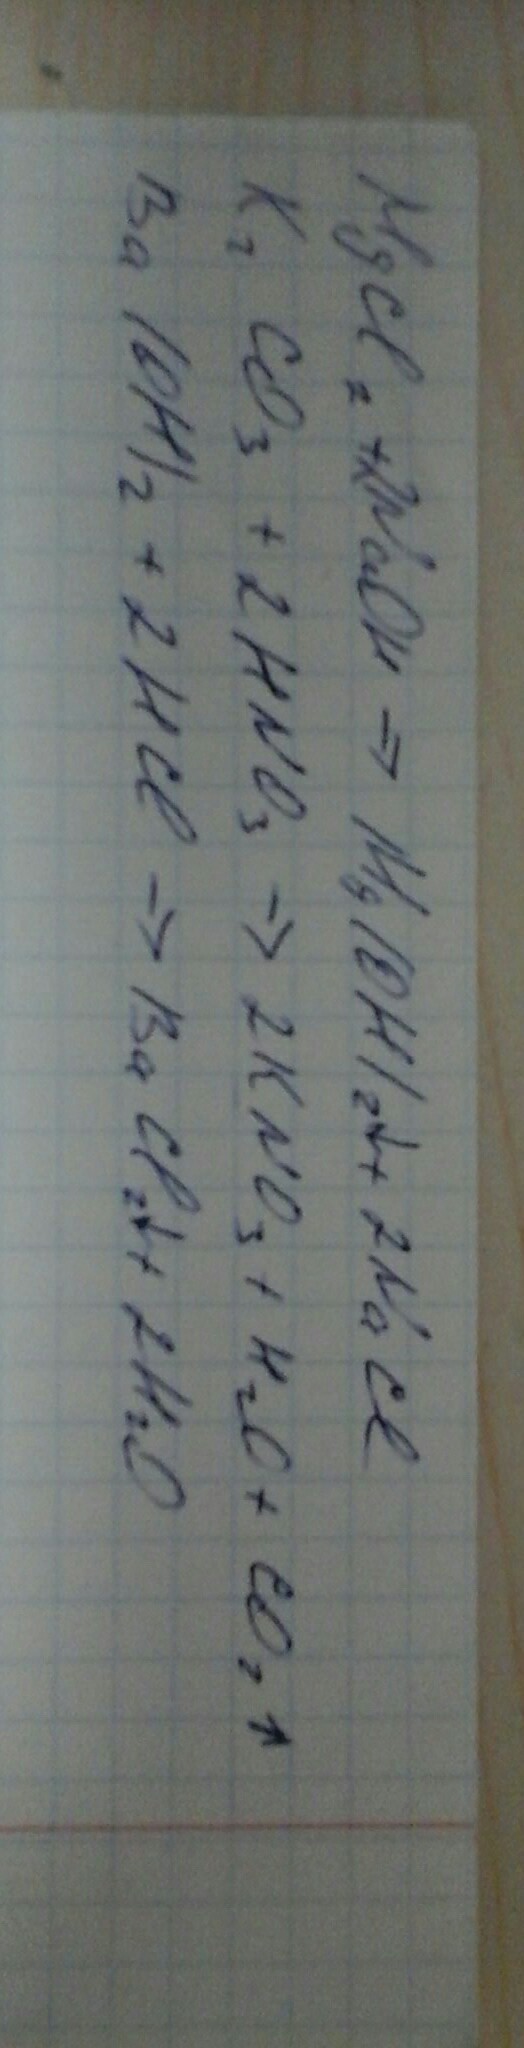 MgCl₂ + 2NaOH → Mg(OH)₂↓ + 2NaCl
K₂CO₃ + 2HNO₃ → 2KNO₃ + H₂O + CO₂↑
Ba(OH)₂ + 2HCl → BaCl₂↓ + 2H₂O